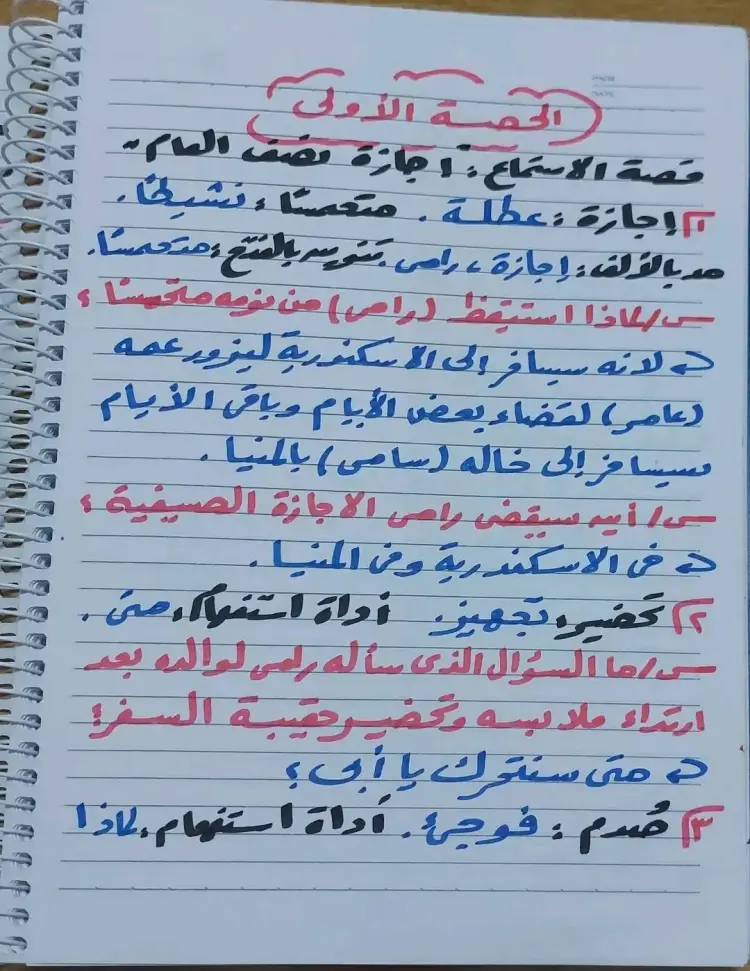 الحصة الأولى
قصة الاستماع : اجازة نصف العام..
١) إجازة : عطلة . متحمسًا : نشيطًا .
مد بالألف : إجازة ، رامى . تنوين بالفتح : متحمسًا .
س/ لماذا استيقظ (رامى) من نومه متحمسًا ؟
لانه سيسافر إلى الاسكندرية ليزور عمه
(عامر) لقضاء بعض الأيام وباقى الأيام
سيسافر إلى خاله (سامى) بالمنيا .
س/ أين سيقضى رامى الاجازة الصيفية ؟
فى الاسكندرية وفى المنيا .
٢) تحضير : تجهيز . أداة استفهام : متى .
س/ ما السؤال الذى سأله رامى لوالده بعد
ارتداء ملابسه وتحضير حقيبة السفر ؟
متى سنتحرك يا أبى ؟
٣) صُدم : فوجئ . أداة استفهام : لماذا